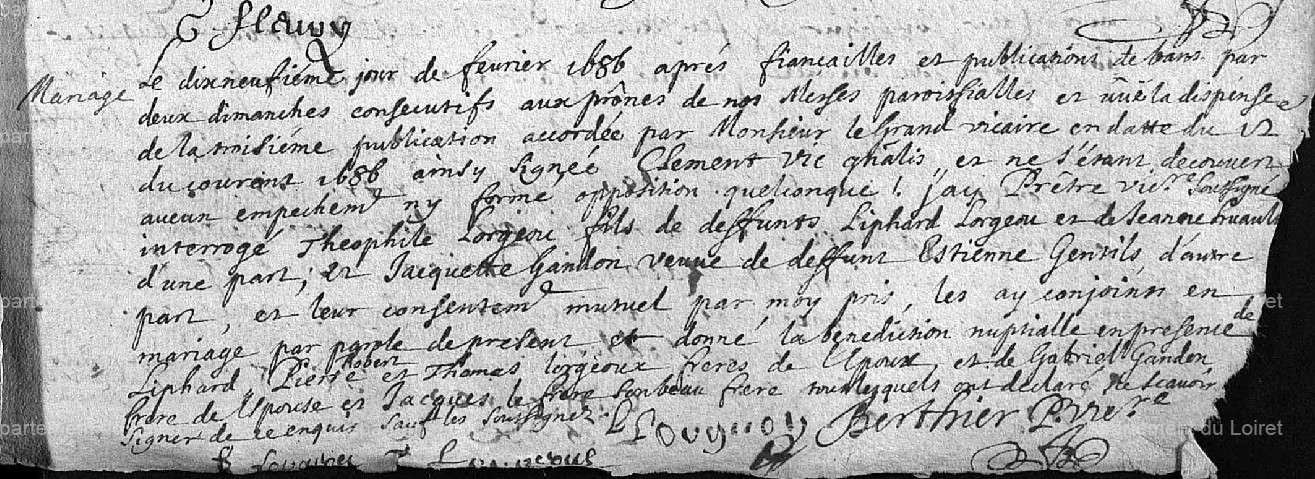 G fleury
Mariage
Le dixneufiéme jour de fevrier 1686 aprés fiancailles et publications de bans par
deux dimanches consecutifs aux prônes de nos Messes paroissialles et vüe la dispense
de la troisiéme publication accordée par Monsieur le Grand vicaire en datte du 12
du courant 1686 ainsy signée Clement vic ghâlis, et ne s'étant decouvert
aucun empechemt ny formé opposition quelconque! J'ay Prêtre vicre soussigné
interrogé Theophile Lorgeou fils de deffunts Liphard Lorgeou et de Jeanne
d'une part, et Jacquette Gandon veuve de deffunt Estienne Gentils d'autre
part, et leur consentemt mutuel par moy pris, les ay conjoints en
mariage par parole de present et donné la benediction nuptialle en presence de
Liphard, Pierre Robert et Thomas lorgeoux freres de l'Epoux, et de Gabriel Gandon
frere de l'Epouse et Jacques le frere frere tous lesquels ont declaré ne scavoir
signer de ce enquis sauf les soussignez.
Berthier P. vicre
partement du Loiret